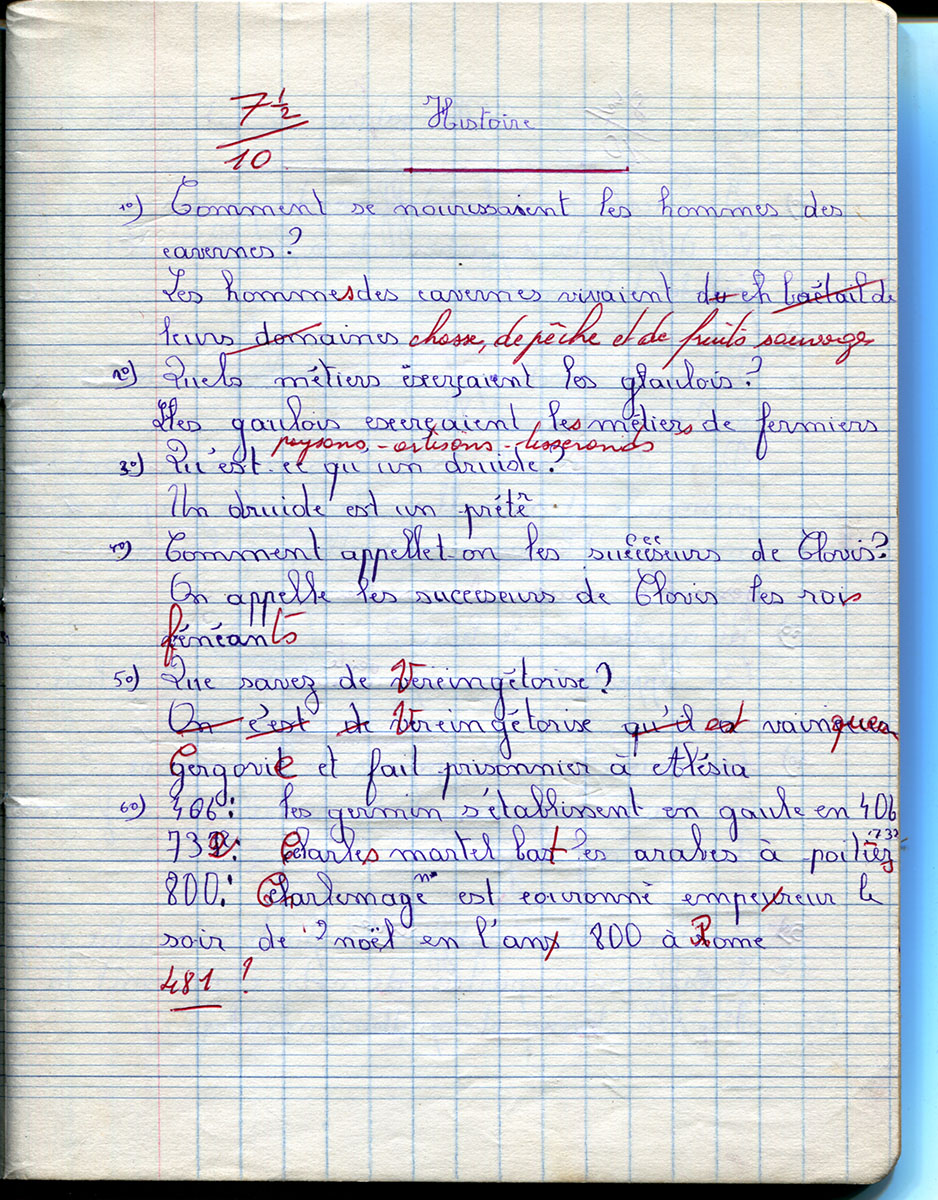 7 ½
10
Histoire
1o) Comment se nourissaient les hommes des
cavernes?
Les hommes des cavernes vivaient de ch baétail de
leurs domaines chasse, de pêche et de fruits sauvages
2o) Quels métiers éxerçaient les glaulois?
Les gaulois exerçaient les métiers de fermiers
paysans - artisans - tisserands
3o) Qu'est-ce qu'un druide?
Un druide est un prêtre
4o) Comment appellet-on les succeseurs de Clovis?
On appelle les succeseurs de Clovis les rois
fénéants
5o) Que savez de Vercingétorise?
On c'est de Vercingétorise qu'il est vainqueur
Gergovie et fait prisonnier à Alésia
6o) 406: les germin s'établissent en gaule en 406
732: Charles martel bat les arabes à poitiez 732
800: Charlemagne est couronné empeyreur le
soir de noël en l'any 800 à Rome
481 ?